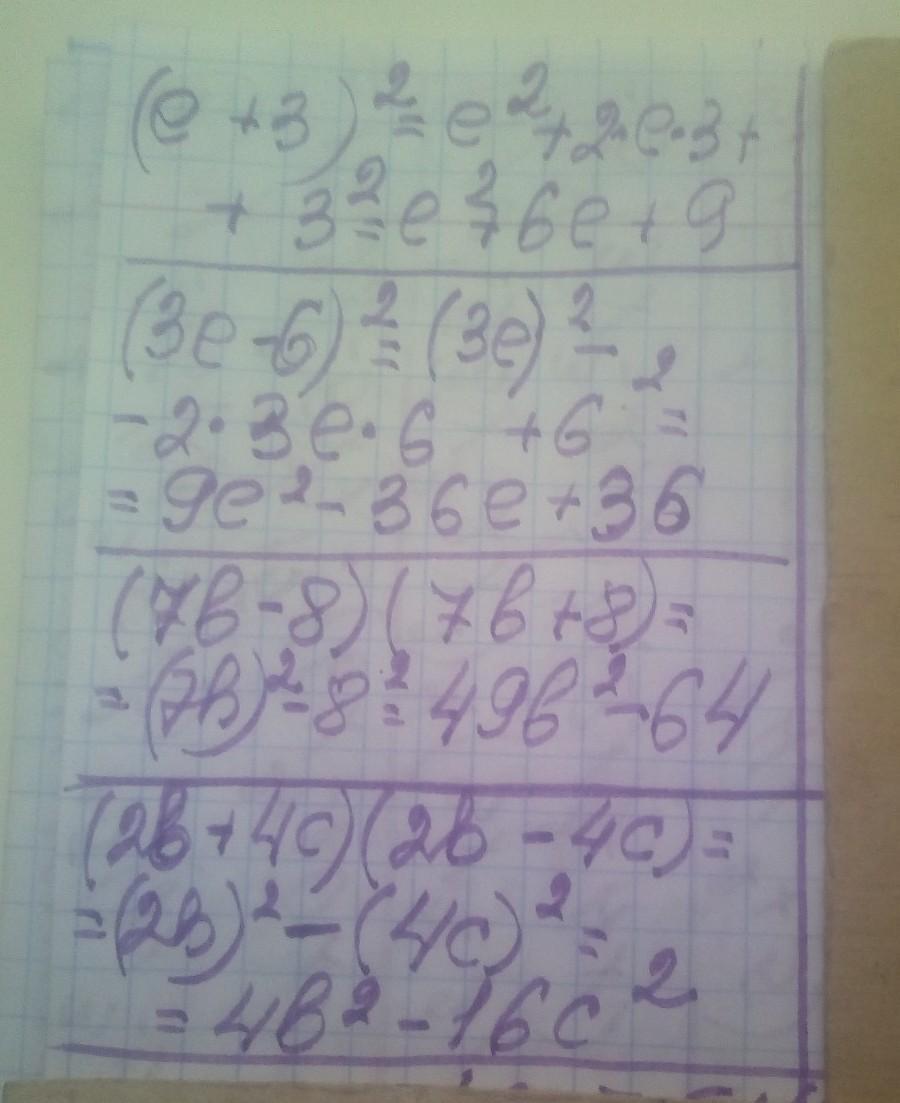 (e + 3)² = e² + 2·e·3 +
+ 3² = e² + 6e + 9
(3e - 6)² = (3e)² -
- 2·3e·6 + 6² =
= 9e² - 36e + 36
(7b - 8)(7b + 8) =
= (7b)² - 8² = 49b² - 64
(2b + 4c)(2b - 4c) =
= (2b)² - (4c)² =
= 4b² - 16c²